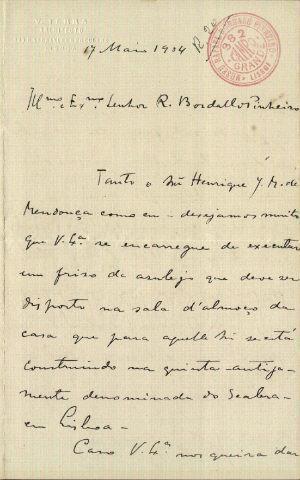 V. TERRA
ARCHITECTO
17 Maio 1904
MUSEU RAFAEL BORDALO PINHEIRO
382
CAMPO GRANDE
LISBOA
Ill.mo e Ex.mo Senhor R. Bordallo Pinheiro
Tanto o Snr Henrique J. M. de
Mendonça como eu - desejamos muito
que V. Ex.ª se encarregue de executar
um friso de azulejo que deve ser
disposto na sala d'almoço da
casa que para aquelle Snr se está
construindo na quinta antiga-
mente denominada do Seabra
em Lisboa -
Caso V. Ex.ª nos queira dar